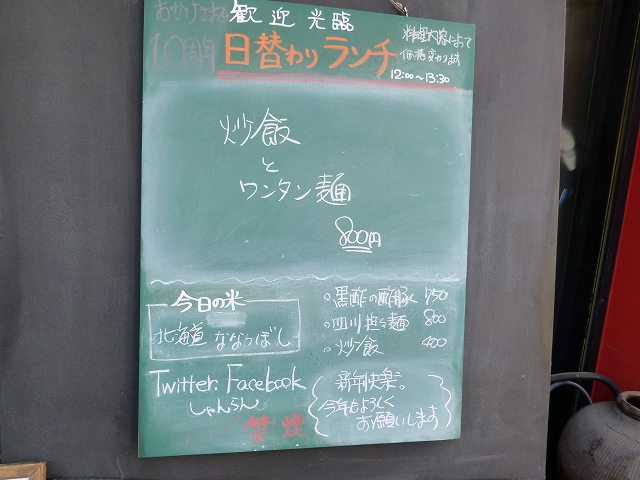 おかげさまで
10周年
歓迎光臨
日替わりランチ
料理内容によって
価格変わります
12:00～13:30
炒飯
と
ワンタン麺
800円
今日の米
北海道 ななつぼし
。黒酢の酢豚 750
。四川担々麺 800
。炒飯 400
Twitter. Facebook
しゃんらん
禁煙
新年快楽。
今年もよろしく
お願いします